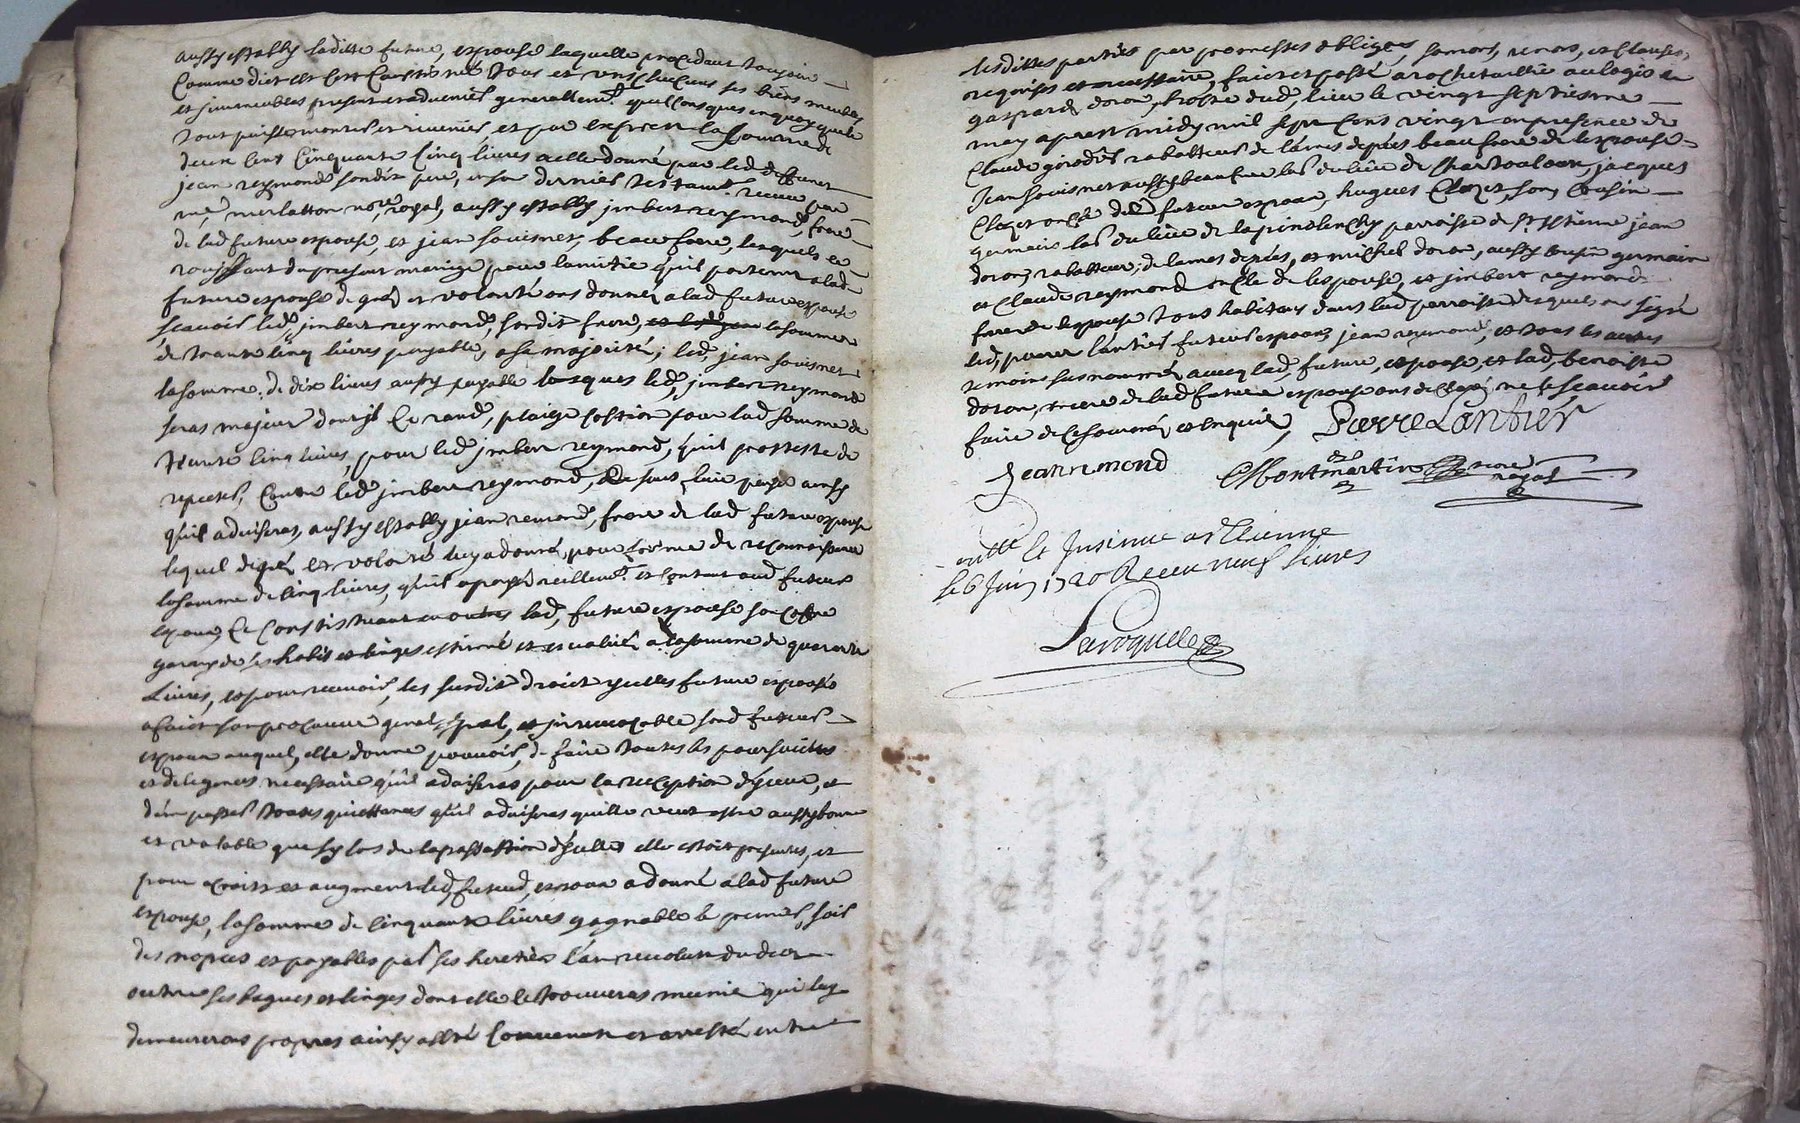 aussy establÿ laditte future, espouse laquelle procedant toujour
comme dict est sest constitués tous et uns chacuns ses biens meubles
et jmmeubles present et advenirs generallemt. quelconques en quoy que le
tout puisse monter et revenir, et par exprest la somme de
deux cent cinquante cinq livres a elle donné par led deffunct
jean reymond, sondit pere, en son dernier testamt. receu par
me, merlatton nore, royal, aussy establÿ jmbert reymond, frere
de lad future espouse, et jean souisner, beau frere, lesquels se
rouissant du present mariage pour lamitie quil portent a lad
future espouse de gré et volonté ons donner a lad future espouse
scavoir led, jmbert reymond, sondit frere, lasomme
de trante cinq livres payable, a sa majorité, led, jean souisner
lasomme, de dix livres aussy payable lorsques led, jmbert reymond
seras majeur dont jl se rand, plaige caption pour lad somme de
trante cinq livres, pour led jmbert reymond, quil protteste de
repeter, contre led jmbert reymond, faire payer ainsy
quil aduiseras, aussy establÿ jean remond, frere de lad future espouse
lequel de gré et volonté luy a donné, pour forme de reconnoissance
lasomme de cinq livres, quil a payé reellemt. et contant aud futeur
espoux, se constituant en outre lad, future espouse son coffre
garny de ses habis et linges estimé et evalué a lasomme de quarante
livres, et pour recevoir, les susdit droict ycelles future espouse
a faict son procureur general, spal, et jrrevocable sond futeur
espoux auquel, elle donne pouvoir, de faire toutes les poursuittes
et deligences necessaire quil aduiseras pour la reception d'yceux, et
den passer toutes quiettances quil aduiseras quelle veut estre aussy bonne
et valable que sy lors de la passassion d'ycelles elle estoit presentes, et
pour croist et augment led, futeur, espoux a donné a lad future
espouse, lasomme de cinquante livres gagnable le premier, soir
des nopces et payables par ses heretiers l'an revolu du deces
outre ses bagues et linges dont elle se trouveras munie qui luy
demeureront propres ainsy a esté convenu et arresté entre
lesdittes parties par promesses obliges, somons, renons, et clauses,
requises et necessaire, faict et passé a rochetaillie au logis de
gaspard doron, hoste dud, lieu le vingt septiesme
may aprest midy mil sept cens vingt en presence de
Claude girodet rabatteur de lames depées beau frere de lespouse
Jean souisner aussy beau frere labr du lieu de jacques
Clozet oncle dud futeur espoux, hugues Clozet, son, cousin
germain labr du lieu de parroisse de St. Estienne jean
doron, rabatteur, de lames depées, et michel doron, aussy cousin germain
et Claude reymond oncle de lespouse, et jmbert reymond
frere de lespouse tous habitans dans lad parroisse desquels ons signé
led, pierre lantier futeur espoux, jean reymond, et tous les autres
temoins susnommés avecq lad, future, espouse, et lad, benoiste
doron, mere de lad future espouse ons declaré, ne scavoir
faire de ce sommés et enquis,   Pierre Lantier
Jean rimond   Montmartin nore royal
Contlle et Jnsinué a St Etienne
le 6 Juin 1720 Receu neuf livres
Laroquelle